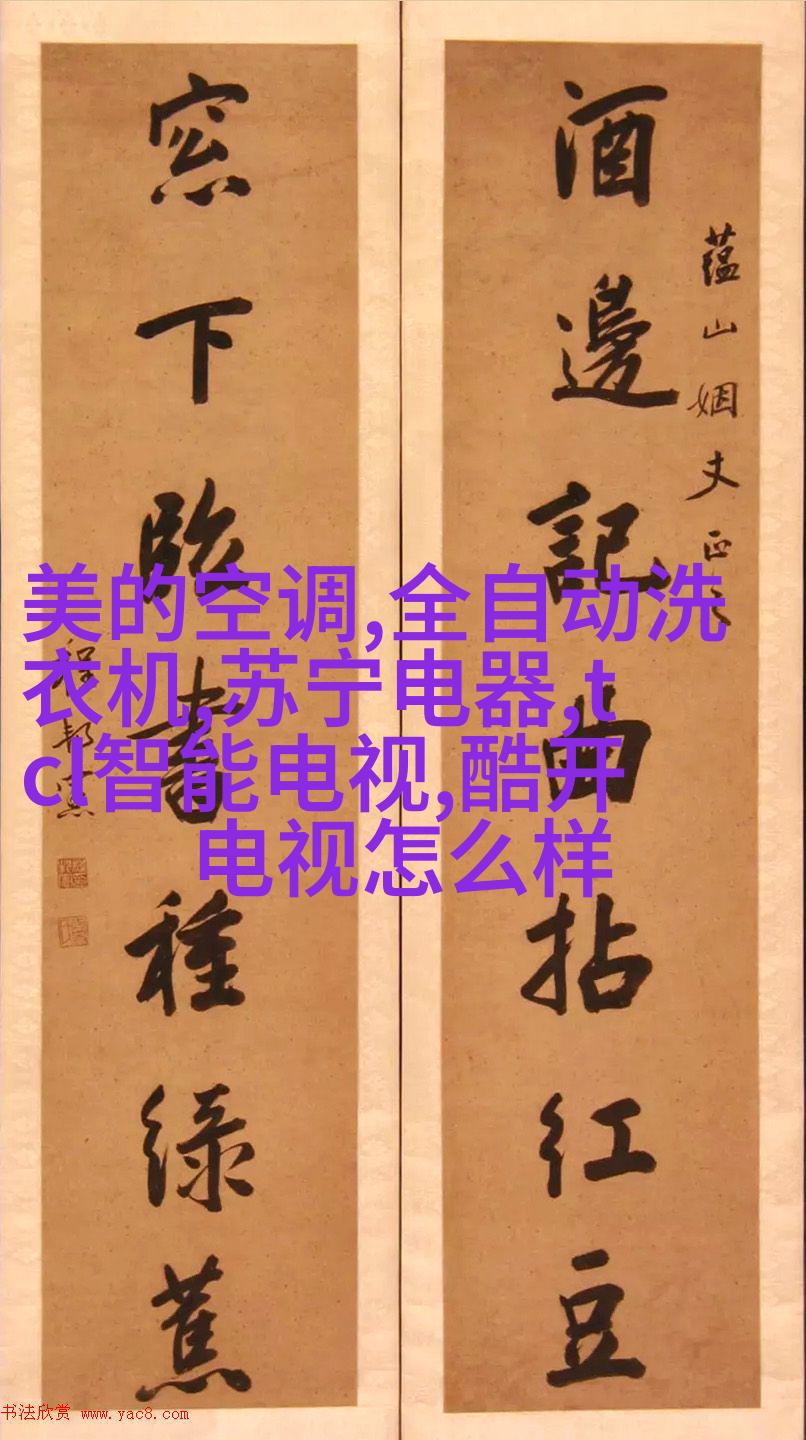 蘊山姻丈正之
酒邊記曲拈紅豆
窓下臨書種綠蕉
程邦憲
美的空调,全自动洗
衣机,苏宁电器,t
cl智能电视,酷开
电视怎么样
书法欣赏 www.yac8.com